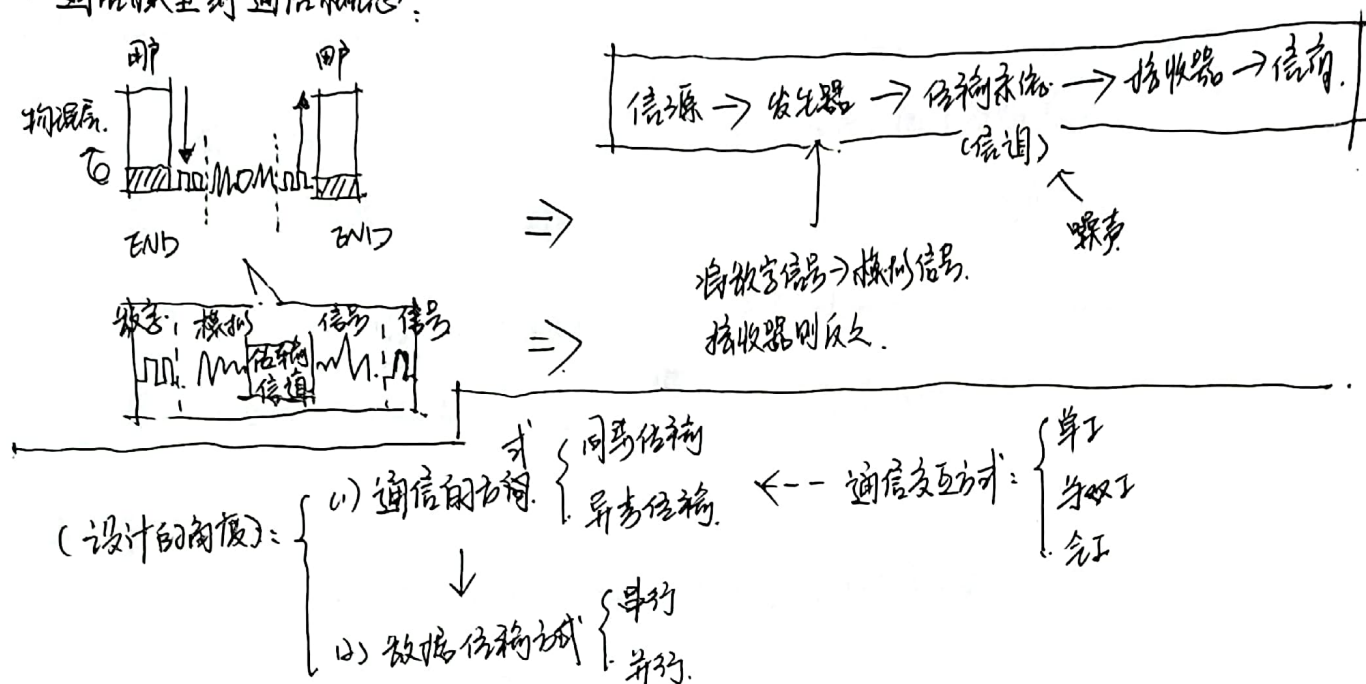 用户 用户
物理层
END END
数字 模拟 信号 信号
传输
信道
信源 → 发生器 → 传输系统 → 接收器 → 信宿.
(信道)
噪声
⇒
将数字信号→模拟信号.
⇒
接收器则反之.
(设计的角度):
(1) 通信的方式
同步传输
异步传输.
←-- 通信交互方式:
单工
半双工
全工
(2) 数据传输方式
串行
并行.